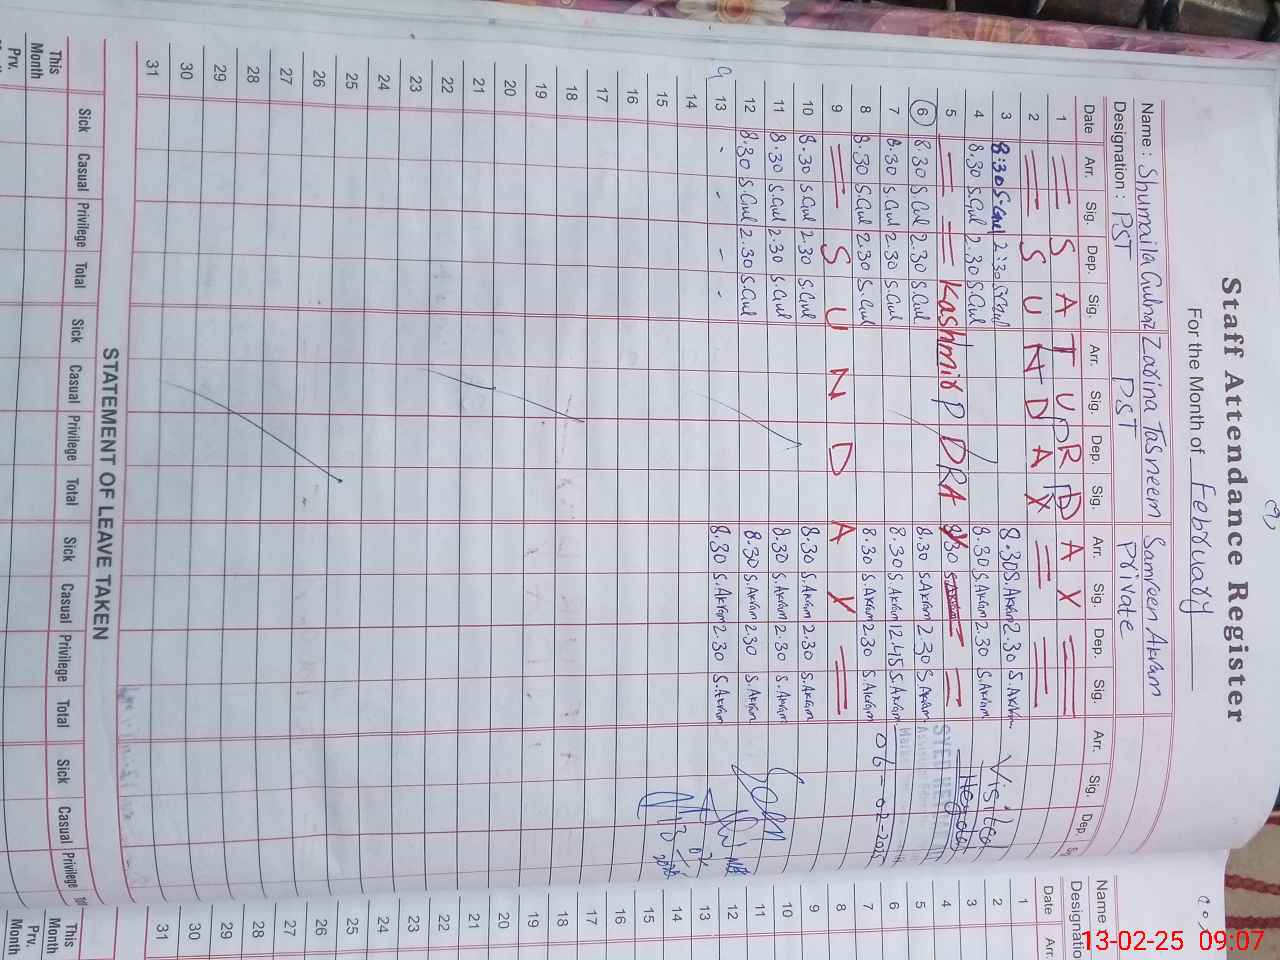 Staff Attendance Register
For the Month of February
Name : Shumaila Gulnaz Zarina Tasneem Samreen Akram
Designation : PST PST Private
Date Arr. Sig. Dep. Sig. Arr. Sig. Dep. Sig. Arr. Sig. Dep. Sig. Arr. Sig. Dep.
1 S A T U R D A Y
2 S U N D A Y
3 8:30 S.Gul 2:30 S.Gul 8.30 S.Akram 2.30 S.Akram Visited
4 8.30 S.Gul 2.30 S.Gul 8.30 S.Akram 2.30 S.Akram
5 Kashmir DRAY 8.30 S.Akram
6 8.30 S.Gul 2.30 S.Gul 8.30 S.Akram 2.30 S.Akram
7 8.30 S.Gul 2.30 S.Gul 8.30 S.Akram 12.45 S.Akram
8 8.30 S.Gul 2.30 S.Gul 8.30 S.Akram 2.30 S.Akram 06-02-2025
9 S U N D A Y
10 8.30 S.Gul 2.30 S.Gul 8.30 S.Akram 2.30 S.Akram
11 8.30 S.Gul 2.30 S.Gul 8.30 S.Akram 2.30 S.Akram
12 8.30 S.Gul 2.30 S.Gul 8.30 S.Akram 2.30 S.Akram
13 - - - - 8.30 S.Akram 2.30 S.Akram
14
15
16
17
18
19
20
21
22
23
24
25
26
27
28
29
30
31
STATEMENT OF LEAVE TAKEN
Sick Casual Privilege Total Sick Casual Privilege Total Sick Casual Privilege Total Sick Casual Privilege
This Month
Prv. Month
Name
Designatio
Date Arr.
1
2
3
4
5
6
7
8
9
10
11
12
13
14
15
16
17
18
19
20
21
22
23
24
25
26
27
28
29
30
31
This Month
Prv. Month
13-02-25 09:07